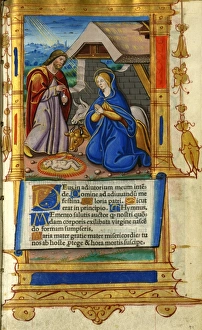 Deus in adiutorium meum inte
de. Domine ad adiuvandum me
festina. Gloria patri. Sicut
erat in principio. Hymnus.
Memento salutis auctor q̃ nostri quon
dam corporis ex illibata virgine nascen
do formam sumpseris.
Maria mater gratie mater misericordie tu
nos ab hoste ptege & hora mortis suscipe.